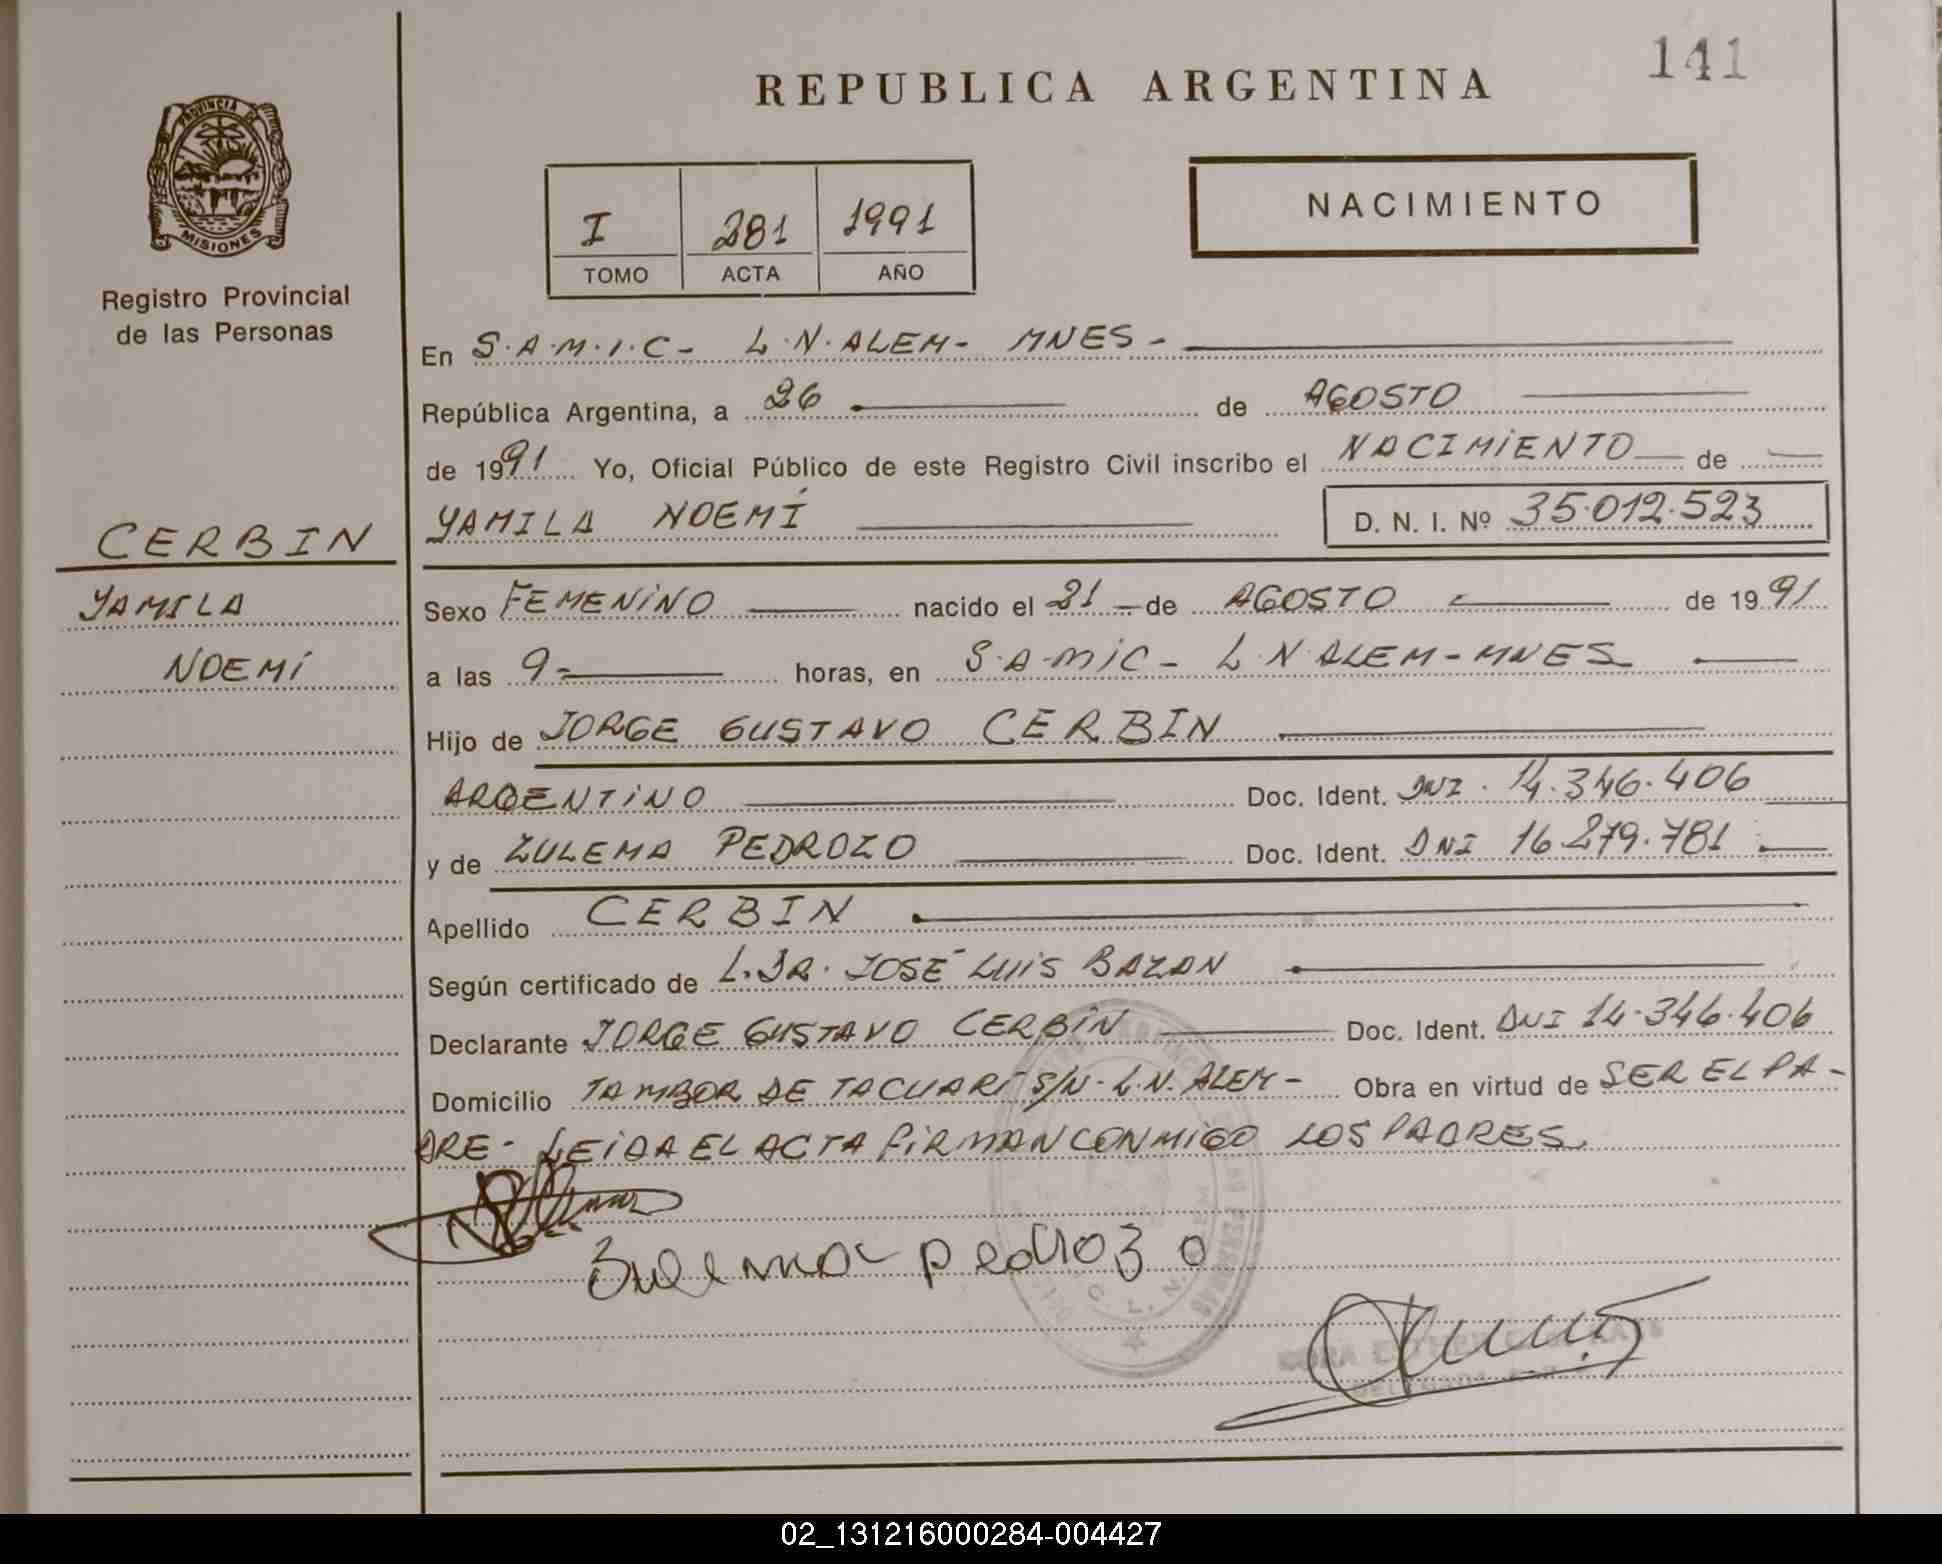 141
REPUBLICA ARGENTINA
PROVINCIA DE
MISIONES
Registro Provincial
de las Personas
I 281 1991
TOMO ACTA AÑO
NACIMIENTO
En S.A.M.I.C- L.N.ALEM- MNES-
República Argentina, a 26 de AGOSTO
de 1991 Yo, Oficial Público de este Registro Civil inscribo el NACIMIENTO de
YAMILA NOEMÍ D. N. I. Nº 35.012.523
CERBIN
YAMILA
NOEMÍ
Sexo FEMENINO nacido el 21 de AGOSTO de 1991
a las 9- horas, en S.A.MIC- L.N.ALEM-MNES
Hijo de JORGE GUSTAVO CERBIN
ARGENTINO Doc. Ident. DNI. 14.346.406
y de ZULEMA PEDROZO Doc. Ident. DNI 16.279.781
Apellido CERBIN
Según certificado de L.DR. JOSÉ LUIS BAZAN
Declarante JORGE GUSTAVO CERBIN Doc. Ident. DNI 14.346.406
Domicilio TAMBOR DE TACUARÍ S/N- L.N. ALEM- Obra en virtud de SER EL PA-
DRE- LEIDA EL ACTA FIRMAN CONMIGO LOS PADRES.
Zulema pedrozo
02_131216000284-004427